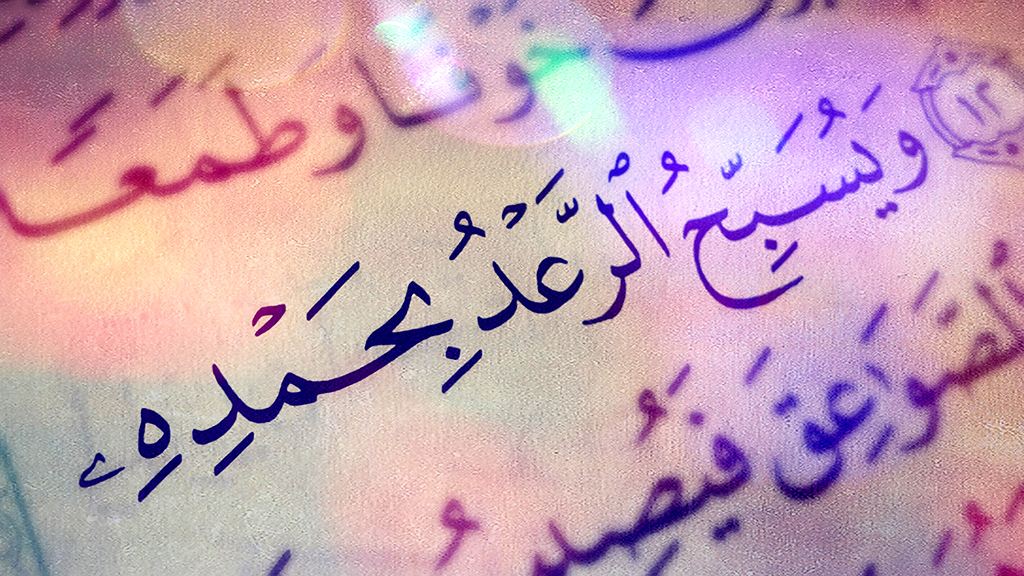 خَوْفًا وَطَمَعًا
١٢ وَيُسَبِّحُ ٱلرَّعْدُ بِحَمْدِهِۦ
ٱلصَّوَٰعِقَ فَيُصِيبُ